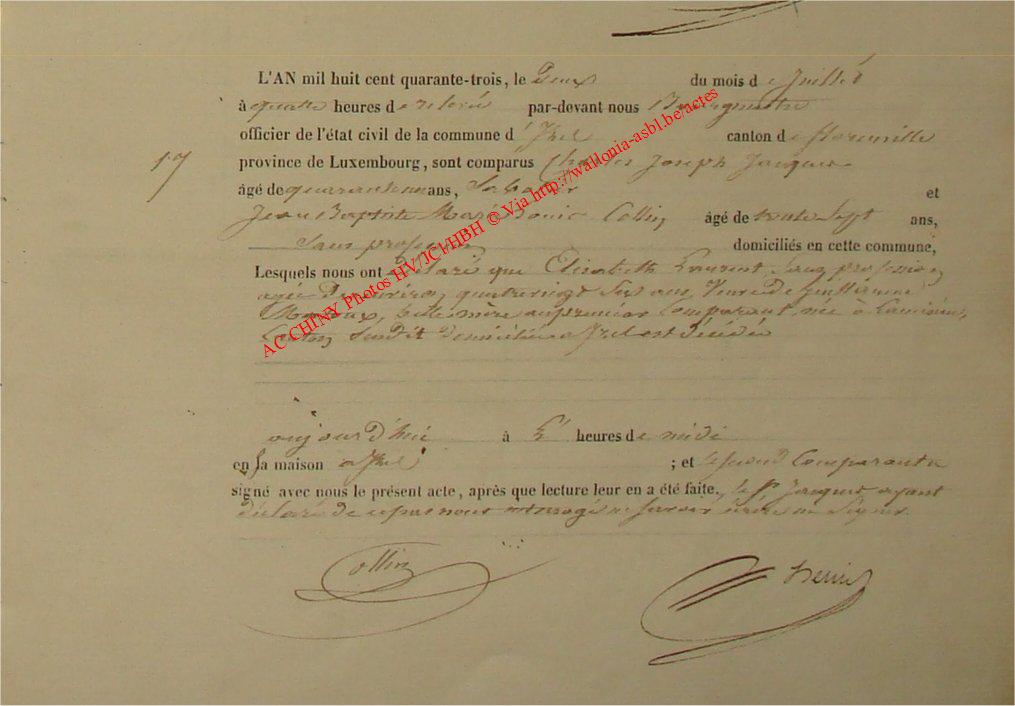 L'AN mil huit cent quarante-trois, le Deux du mois de Juillet
à quatre heures de relevé par-devant nous Bourgmestre
officier de l'état civil de la commune d' Izel canton de florenville
17
province de Luxembourg, sont comparus Charles Joseph Jacques
âgé de quarante un ans, Sabotier et
Jean Baptiste Collin âgé de trente Sept ans,
Sans profession domiciliés en cette commune,
Lesquels nous ont déclaré que Elisabeth Laurent, Sans profession
agée d'environ quatrevingt Six ans, Veuve de
belle mère au premier Comparant, née à
Canton Susdit domiciliée a Izel est décédée
aujourd'hui à heures de midi
en sa maison a Izel ; et le second Comparant a
signé avec nous le présent acte, après que lecture leur en a été faite, le Sr Jacques ayant
déclaré de ce par nous savoir écrire ni Signer.
Collin
AC CHINY Photos HV/JCI/HBH © Via http://wallonia-asbl.be/actes